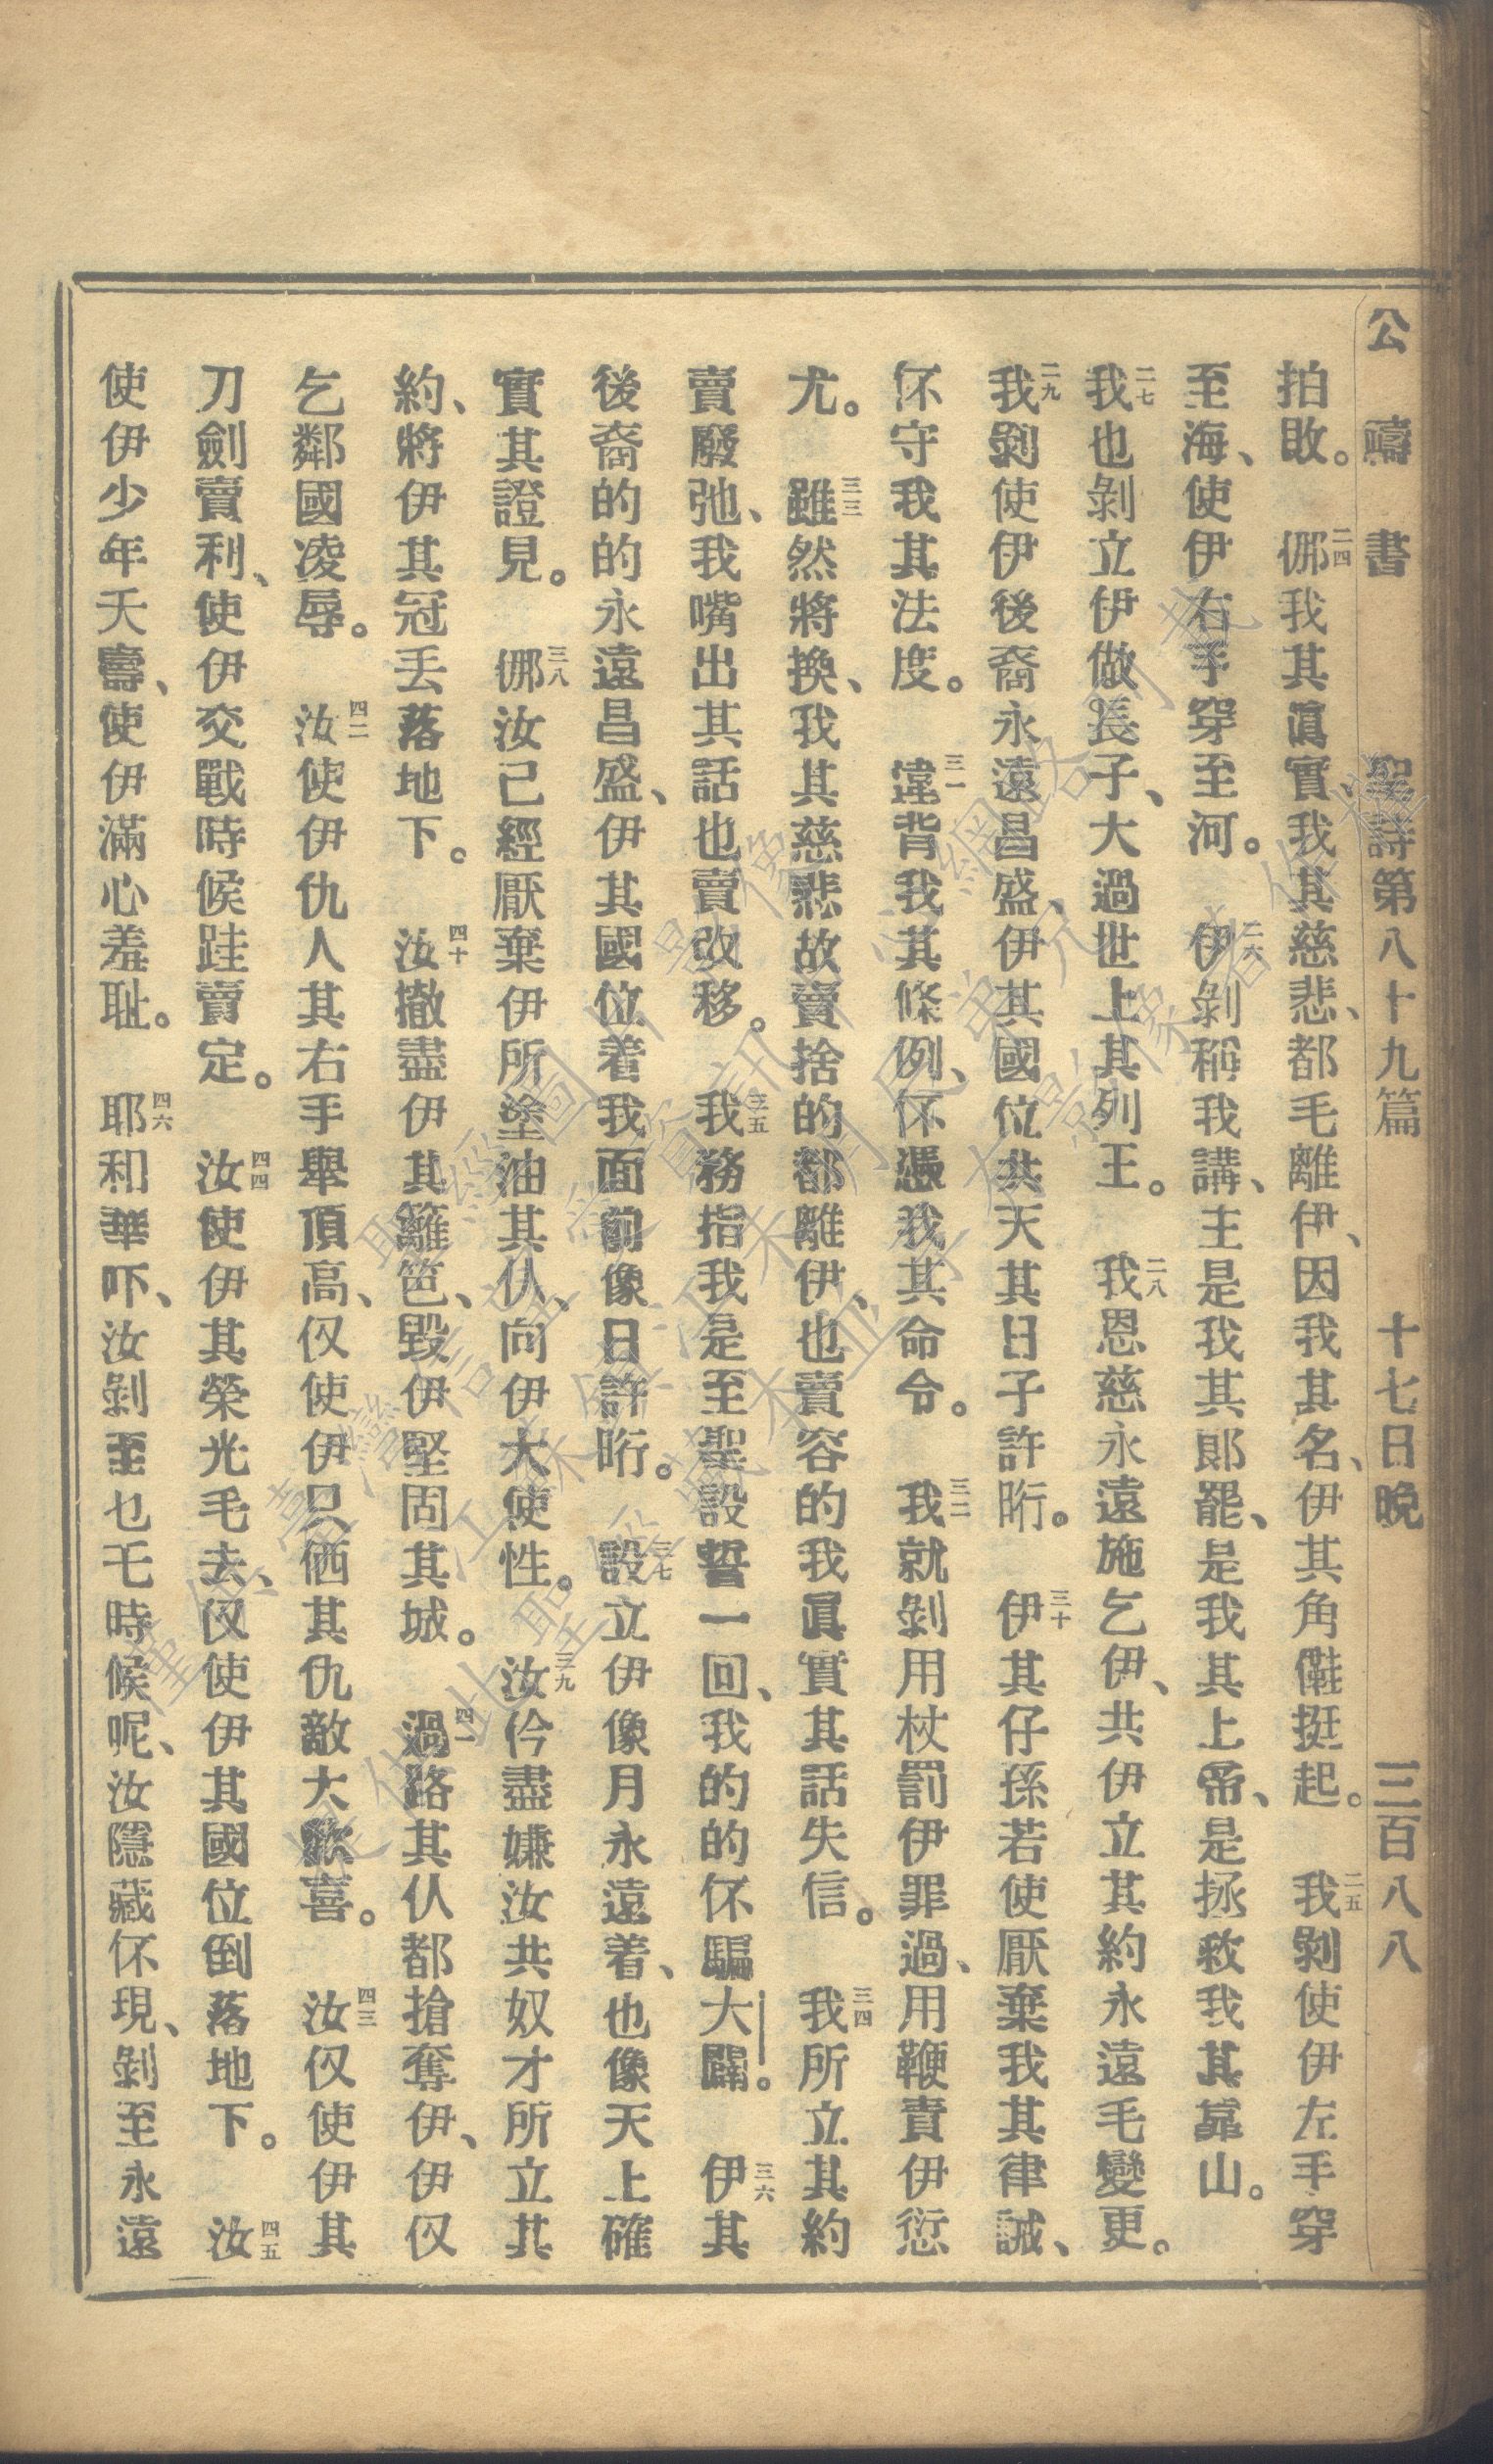 公禱書 聖詩第八十九篇 十七日晚 三百八八
拍敗。二四㑚我其眞實、我其慈悲、都毛離伊、因我其名、伊其角儺挺起。二五我剝使伊左手穿
至海、使伊右手穿至河。二六伊剝稱我講、主是我其郞罷、是我其上帝、是拯救我其靠山。
二七我也剝立伊做長子、大過世上其列王。二八我恩慈永遠施乞伊、共伊立其約永遠毛變更。
二九我剝使伊後裔永遠昌盛、伊其國位共天其日子許𣍐。三十伊其仔孫若使厭棄我其律誡、
伓守我其法度。三一違背我其條例、伓憑我其命令。三二我就剝用杖罰伊罪過、用鞭責伊愆
尤。三三雖然將換、我其慈悲故賣捨的都離伊、也賣容的我眞實其話失信。三四我所立其約
賣廢弛、我嘴出其話也賣改移。三五我務指我是至聖設誓一回、我的的伓騙大闢。三六伊其
後裔的的永遠昌盛、伊其國位着我面前像日許𣍐。三七設立伊像月永遠着、也像天上確
實其證見。三八㑚汝已經厭棄伊所塗油其仈、向伊大使性。三九汝仱盡嫌汝共奴才所立其
約、將伊其冠丟落地下。四十汝撤盡伊其籬笆、毀伊堅固其城。四一過路其仈都搶奪伊、伊仅
乞鄰國凌辱。四二汝使伊仇人其右手舉頂高、仅使伊只𠆧其仇敵大歡喜。四三汝仅使伊其
刀劍賣利、使伊交戰時候跬賣定。四四汝使伊其榮光毛去、仅使伊其國位倒落地下。四五汝
使伊少年夭壽、使伊滿心羞恥。四六耶和華吓、汝剝至乜乇時候呢、汝隱藏伓現、剝至永遠